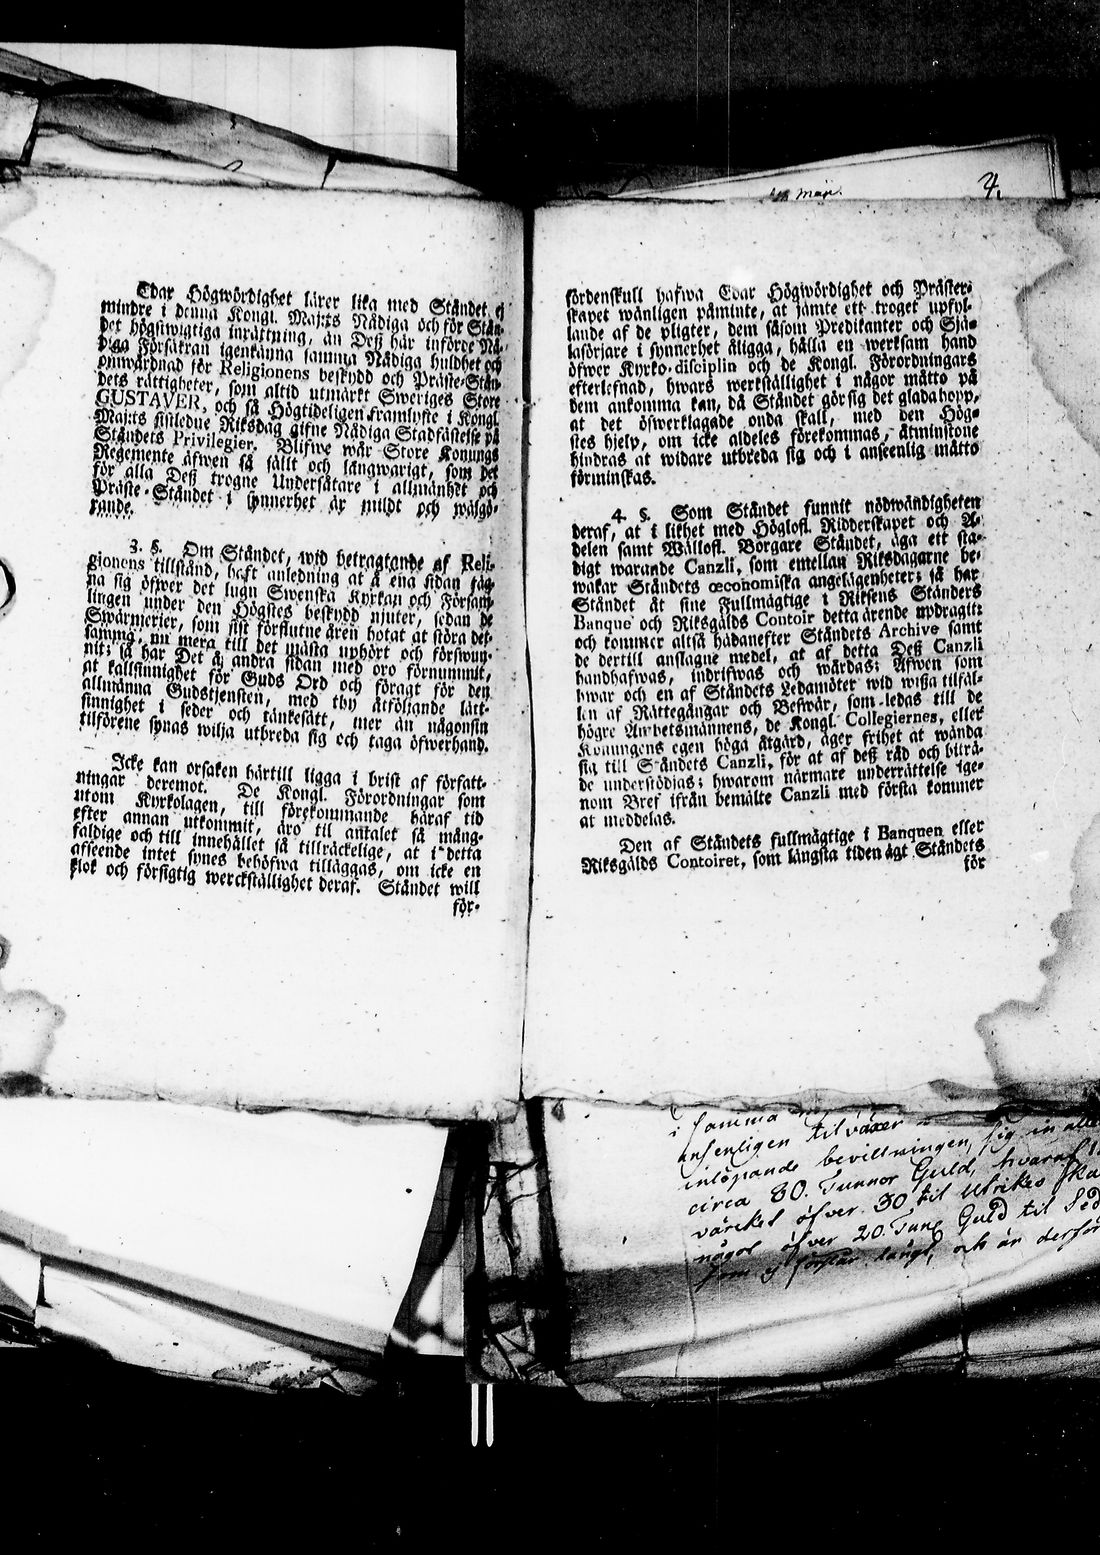 Edar Högwördighet lärer lika med Ståndet ej
mindre i denna Kongl. Maj:ts Nådiga och för Stån-
det högstwigtiga inrättning, än Deß här införde Nå-
diga Försäkran igenkänna samma Nådiga huldhet och
omwårdnad för Religionens beskydd och Präste-Stån-
dets rättigheter, som altid utmärkt Sweriges Store
GUSTAVER, och så Högtideligen framlyste i Kongl.
Maj:ts sistledne Riksdag gifne Nådiga Stadfästelse på
Ståndets Privilegier. Blifwe wår Store Konungs
Regemente äfwen så sällt och långwarigt, som det
för alla Deß trogne Undersåtare i allmänhet och
Präste-Ståndet i synnerhet är mildt och wälgö-
rande.
3. §. Om Ståndet, wid betragtande af Reli-
gionens tillstånd, haft anledning at å ena sidan fäg-
na sig öfwer det lugn Swenska Kyrkan och Försam-
lingen under den Högstes beskydd njuter, sedan de
Swärmerier, som sist förflutne åren hotat at störa det-
samma, nu mera till det mästa uphört och förswun-
nit; så har Det å andra sidan med oro förnummit,
at kallsinnighet för Guds Ord och förakt för den
allmänna Gudstjensten, med thy åtföljande lätt-
sinnighet i seder och tänkesätt, mer än någonsin
tilförene synas wilja utbreda sig och taga öfwerhand.
Icke kan orsaken härtill ligga i brist af författ-
ningar deremot. De Kongl. Förordningar som
utom Kyrkolagen, till förekommande häraf tid
efter annan utkommit, äro til antalet så mång-
faldige och till innehållet så tillräckelige, at i detta
afseende intet synes behöfwa tilläggas, om icke en
klok och försigtig werckställighet deraf. Ståndet will
för-
4.
fördenskull hafwa Edar Högwördighet och Präster-
skapet wänligen påminte, at jämte ett troget upfyl-
lande af de pligter, dem såsom Predikanter och Sjä-
lasörjare i synnerhet åligga, hålla en werksam hand
öfwer Kyrko-disciplin och de Kongl. Förordningars
efterlefnad, hwars werkställighet i någor måtto på
dem ankomma kan, då Ståndet gör sig det glada hopp,
at det öfwerklagade onda skall, med den Hög-
stes hjelp, om icke aldeles förekommas, åtminstone
hindras at widare utbreda sig och i anseenlig måtto
förminskas.
4. §. Som Ståndet funnit nödwändigheten
deraf, at i likhet med Höglofl. Ridderskapet och A-
delen samt Wällofl. Borgare Ståndet, äga ett stä-
digt warande Canzli, som emellan Riksdagarne be-
wakar Ståndets œconomiska angelägenheter; så har
Ståndet åt sine Fullmägtige i Riksens Ständers
Banque och Riksgälds Contoir detta ärende updragit;
och kommer altså hädanefter Ståndets Archive samt
de dertill anslagne medel, at af detta Deß Canzli
handhafwas, indrifwas och wårdas; Äfwen som
hwar och en af Ståndets Ledamöter wid wißa tilfäl-
len af Rättegångar och Beswär, som ledas till de
högre Ämbetsmännens, de Kongl. Collegiernes, eller
Konungens egen höga åtgärd, äger frihet at wända
sig till Ståndets Canzli, för at af deß råd och biträ-
de understödjas; hwarom närmare underrättelse ige-
nom Bref ifrån bemälte Canzli med första kommer
at meddelas.
Den af Ståndets fullmägtige i Banquen eller
Riksgälds Contoiret, som längsta tiden ägt Ståndets
för
i samma
ansenligen tilväxer
inlöpande bevillningen, sig in alle
circa 80. Tunnor Guld, hvaraf
värcket öfver 30 til Ulrikes
något öfver 20. Tunn Guld til
som
och är derför